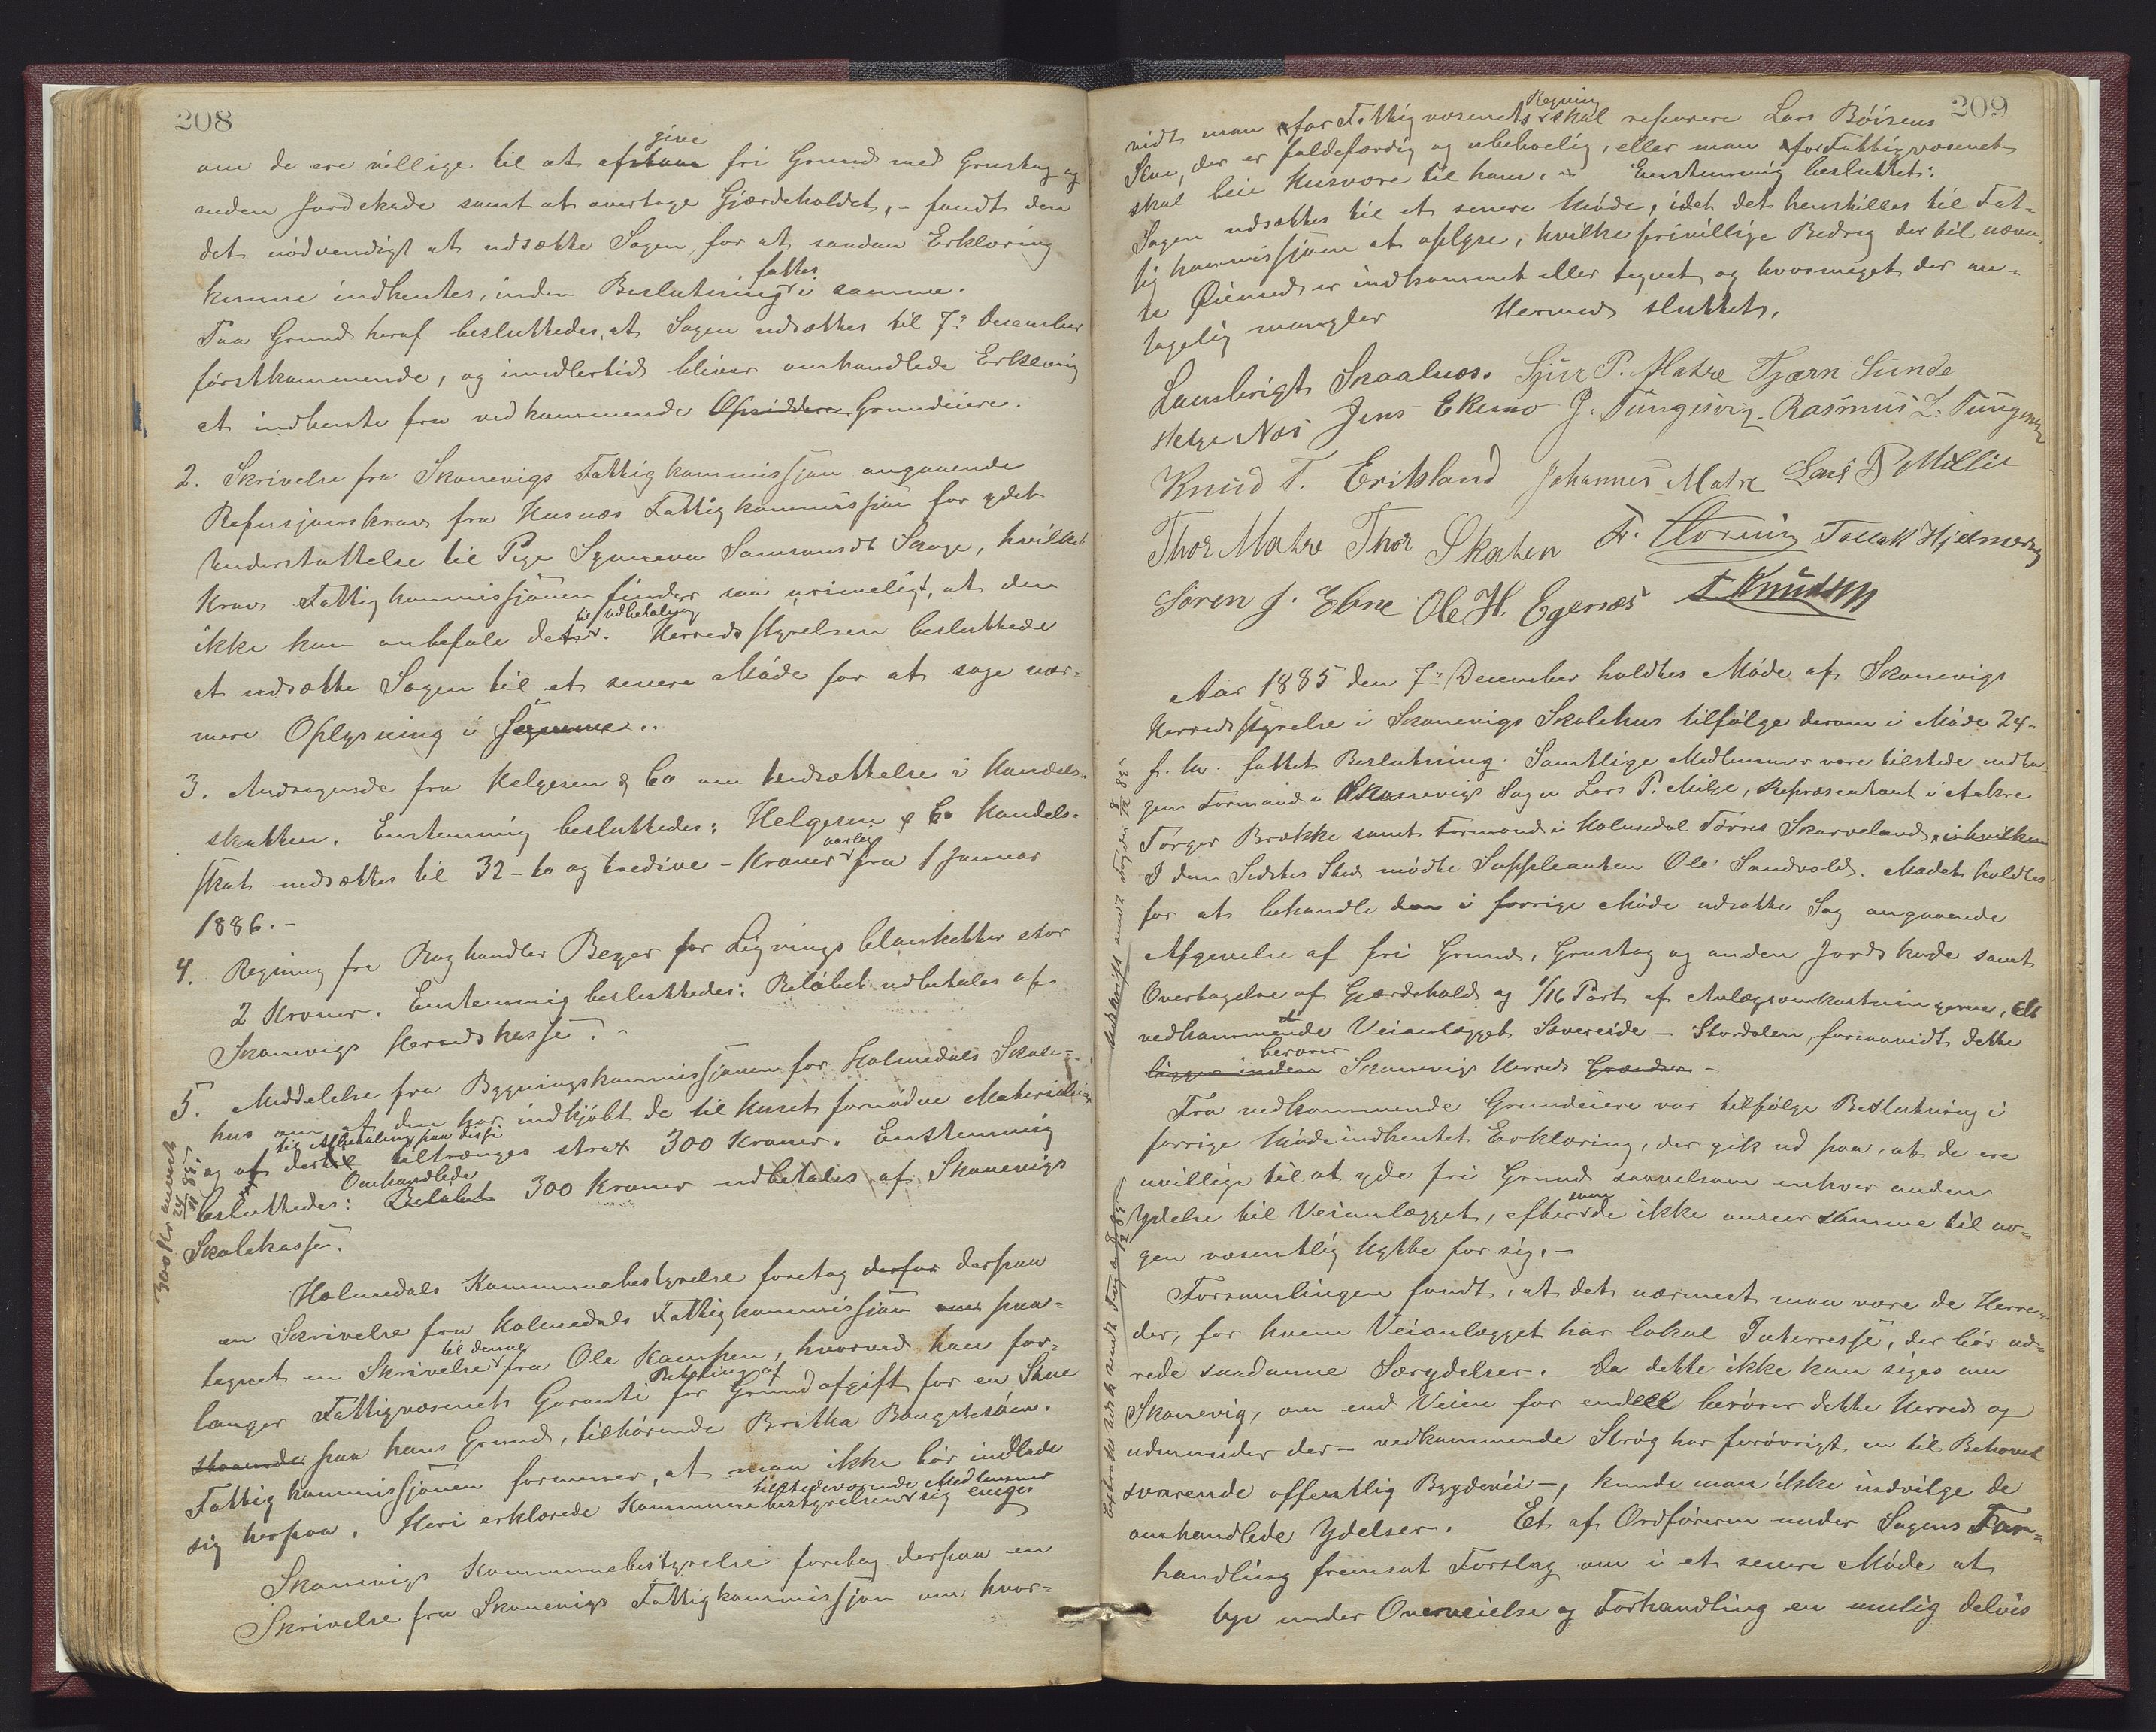 208
give
om de ere villige til at afstaa fri Grund med Grustag og
anden Jordskade samt at overtage Gjærdeholdet, - fandt den
det nödvendigt at udsætte Sagen, for at saadan Erklæring
kunne indhentes, inden Beslutning fattes i samme.
Paa Grund heraf besluttedes, at Sagen udsættes til 7de December
førstkommende, og imidlertid bliver omhandlede Erklæring
at indhente fra vedkommende Opsiddere Grundeiere.
2. Skrivelse fra Skonevigs Fattigkommissjon angaaende
Refusjonskrav fra Husnæs Fattigkommissjon for ydet
Understøttelse til Pige Synneva Samsonsdt Skoge, hvilket
Krav Fattigkommissjonen finder saa urimeligt, at den
ikke kan anbefale det til Udbetaling. Herredsstyrelsen besluttede
at udsætte Sagen til et senere Möde for at söge nær=
mere Oplysning i Samme.
3. Andragende fra Helgesen & Co om Nedsættelse i Handels-
skatten. Enstemmig besluttedes: Helgesen & Co Handels-
skat nedsættes til 32 - to og tredive - Kroner aarlig fra 1 Januar
1886.-
4. Regning fra Boghandler Beyer for Ligningsblanketter stor
2 Kroner. Enstemmig besluttedes: Beløbet udbetales af
Skonevigs Herredskasse.-
5. Meddelelse fra Bygningskommissjonen for Holmedals Skole=
hus om, at den har indkjöbt de til Huset fornödne Materialier
til Afbetaling paa disse
og at dertil tiltrænges strax 300 Kroner. Enstemmig
Omhandlede
besluttedes: Beløbet 300 Kroner udbetales af Skonevigs
Skolekasse.
300 Kr anvist 24/11 85.
Holmedals Kommunebestyrelse foretog derfor derpaa
en Skrivelse fra Holmedals Fattigkommissjon om paa=
tegnet en Skrivelse til denne fra Ole Kampen, hvorved han for=
langer Fattigvæsenets Garanti for Betaling af Grundafgift for en Stue
staaende paa hans Grund, tilhörende Britha Baugstøen.
Fattigkommissjonen formener, at man ikke bör indlade
sig herpaa. Heri erklærede Kommunebestyrelsens tilstedeværende Medlemmer sig enige
Skonevigs Kommunebestyrelse foretog derpaa en
Skrivelse fra Skonevigs Fattigkommissjon om hvor=
209
vidt man for Fattigvæsenets Regning skal reparere Lars Böisens
Stue, der er faldefærdig og ubeboelig, eller man for Fattigvæsenet
skal leie Husvære til ham. - Enstemmig besluttet:
Sagen udsættes til et senere Möde, idet det henstilles til Fat=
tigkommissjonen at oplyse, hvilke frivillige Bidrag der til nævn=
te Öiemed er indkommet eller tegnet og hvormeget der an=
tagelig mangler Hermed sluttet.
Lambrigt Skaalnes. Sjur P. Matre Tjærn Sunde
Helge Næs Jens Ekemo J. Tungesvig. Rasmus L. Tungesvig
Knud T. Eriksland Johannes Matre Lars T Millie
Thor Matre Thor Skaten Tallak Hjelmevig
Sören J. Ebne Ole H. Egenæs T Knudsen
Aar 1885 den 7de December holdtes Möde af Skonevigs
Herredsstyrelse i Skonevigs Skolehus tilfölge derom i Möde 24-
f. M. fattet Beslutning. Samtlige Medlemmer vare tilstede undta=
gen Formand i Skonevigs Sogn Lars P. Milje, Repræsentant i Aakre
Torger Brække samt Formand i Holmedal Torres Skarveland, i hvilken
I den Sidstes Sted mödte Suppleanten Ole Sandvold. Mødet holdtes
for at behandle den i forrige Möde udsatte Sag angaaende
Afgivelse af fri Grund, Grustag og anden Jordskade samt
Overtagelse af Gjærdehold og 1/16 Part af Anlægsomkostningerne, Alt
vedkommende Veianlægget Sævereide - Stordalen, forsaavidt dette
ligger inden berører Skonevigs Herreds Grændser -
Udskrift sendt Fogden 8/12 85
Fra vedkommende Grundeiere var tilfölge Beslutning i
forrige Möde indhentet Erklæring, der gik ud paa, at de ere
uvillige til at yde fri Grund saavelsom enhver anden
Ydelse til Veianlægget, eftersom de ikke anser samme til no=
gen væsentlig Nytte for sig.-
Forsamlingen fandt, at det nærmest maa være de Herre=
der, for hvem Veianlægget har lokal Interesse, der bör ud=
rede saadanne Særydelser. Da dette ikke kan siges om
Skonevig, om end Veien for endeel berörer dette Herred og
udmunder der - vedkommende Strög har forövrigt en til Behovet
svarende offentlig Bygdevei -, kunde man ikke indvilge de
omhandlede Ydelser. Et af Ordföreren under Sagens For=
handling fremsat Forslag om i et senere Möde at
tage under Overveielse og Forhandling en mulig delvis